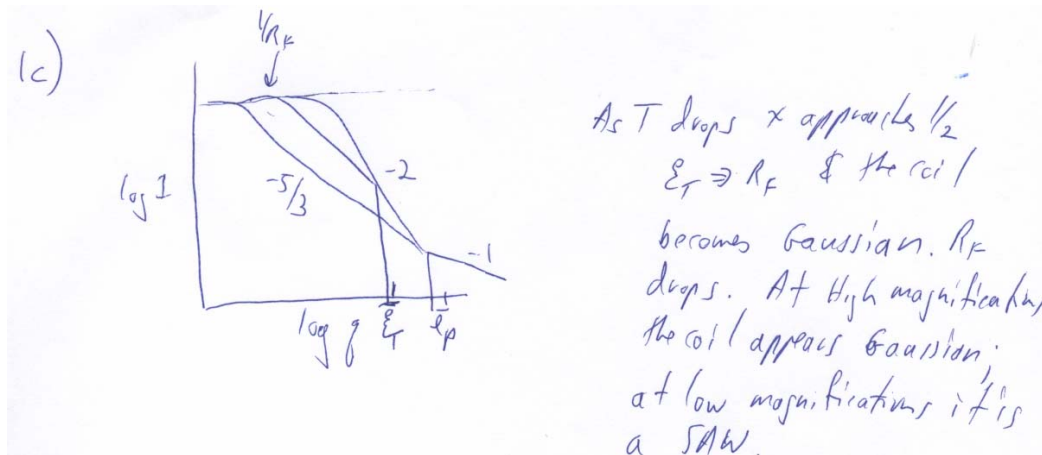 1c)
1/R_F
log I
-5/3
-2
-1
log q
1/ξ_T
1/l_p
As T drops x approaches 1/2
ξ_T ⇒ R_F & the coil
becomes Gaussian. R_F
drops. At High magnification,
the coil appears Gaussian;
at low magnifications it is
a SAW.